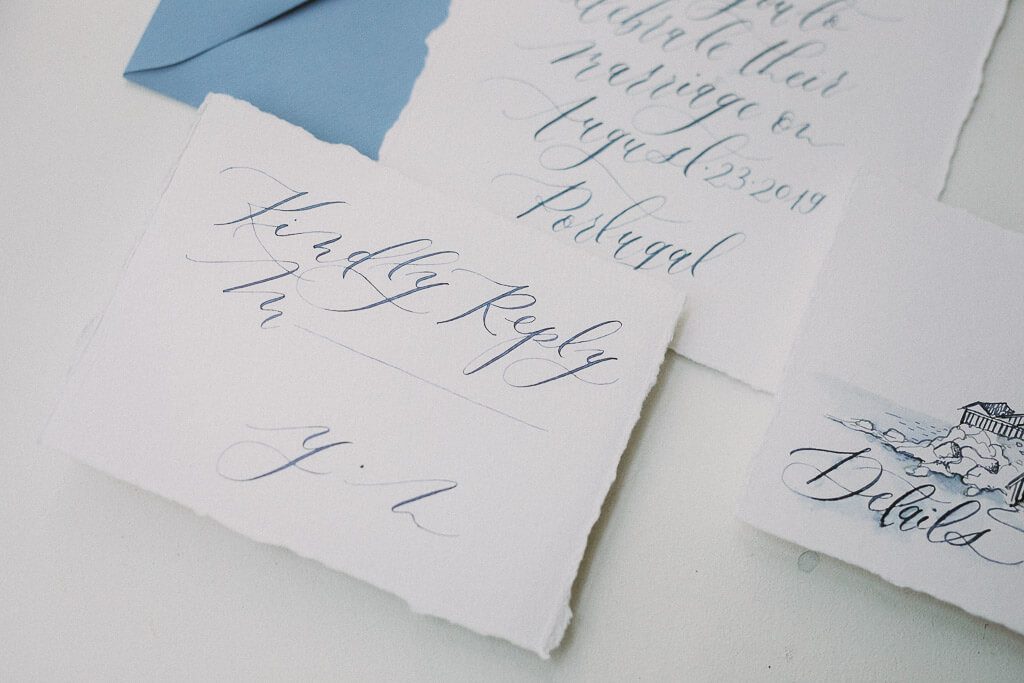 celebrate their
marriage on
August · 23 · 2019
Portugal
Kindly Reply
M
y · n
Details